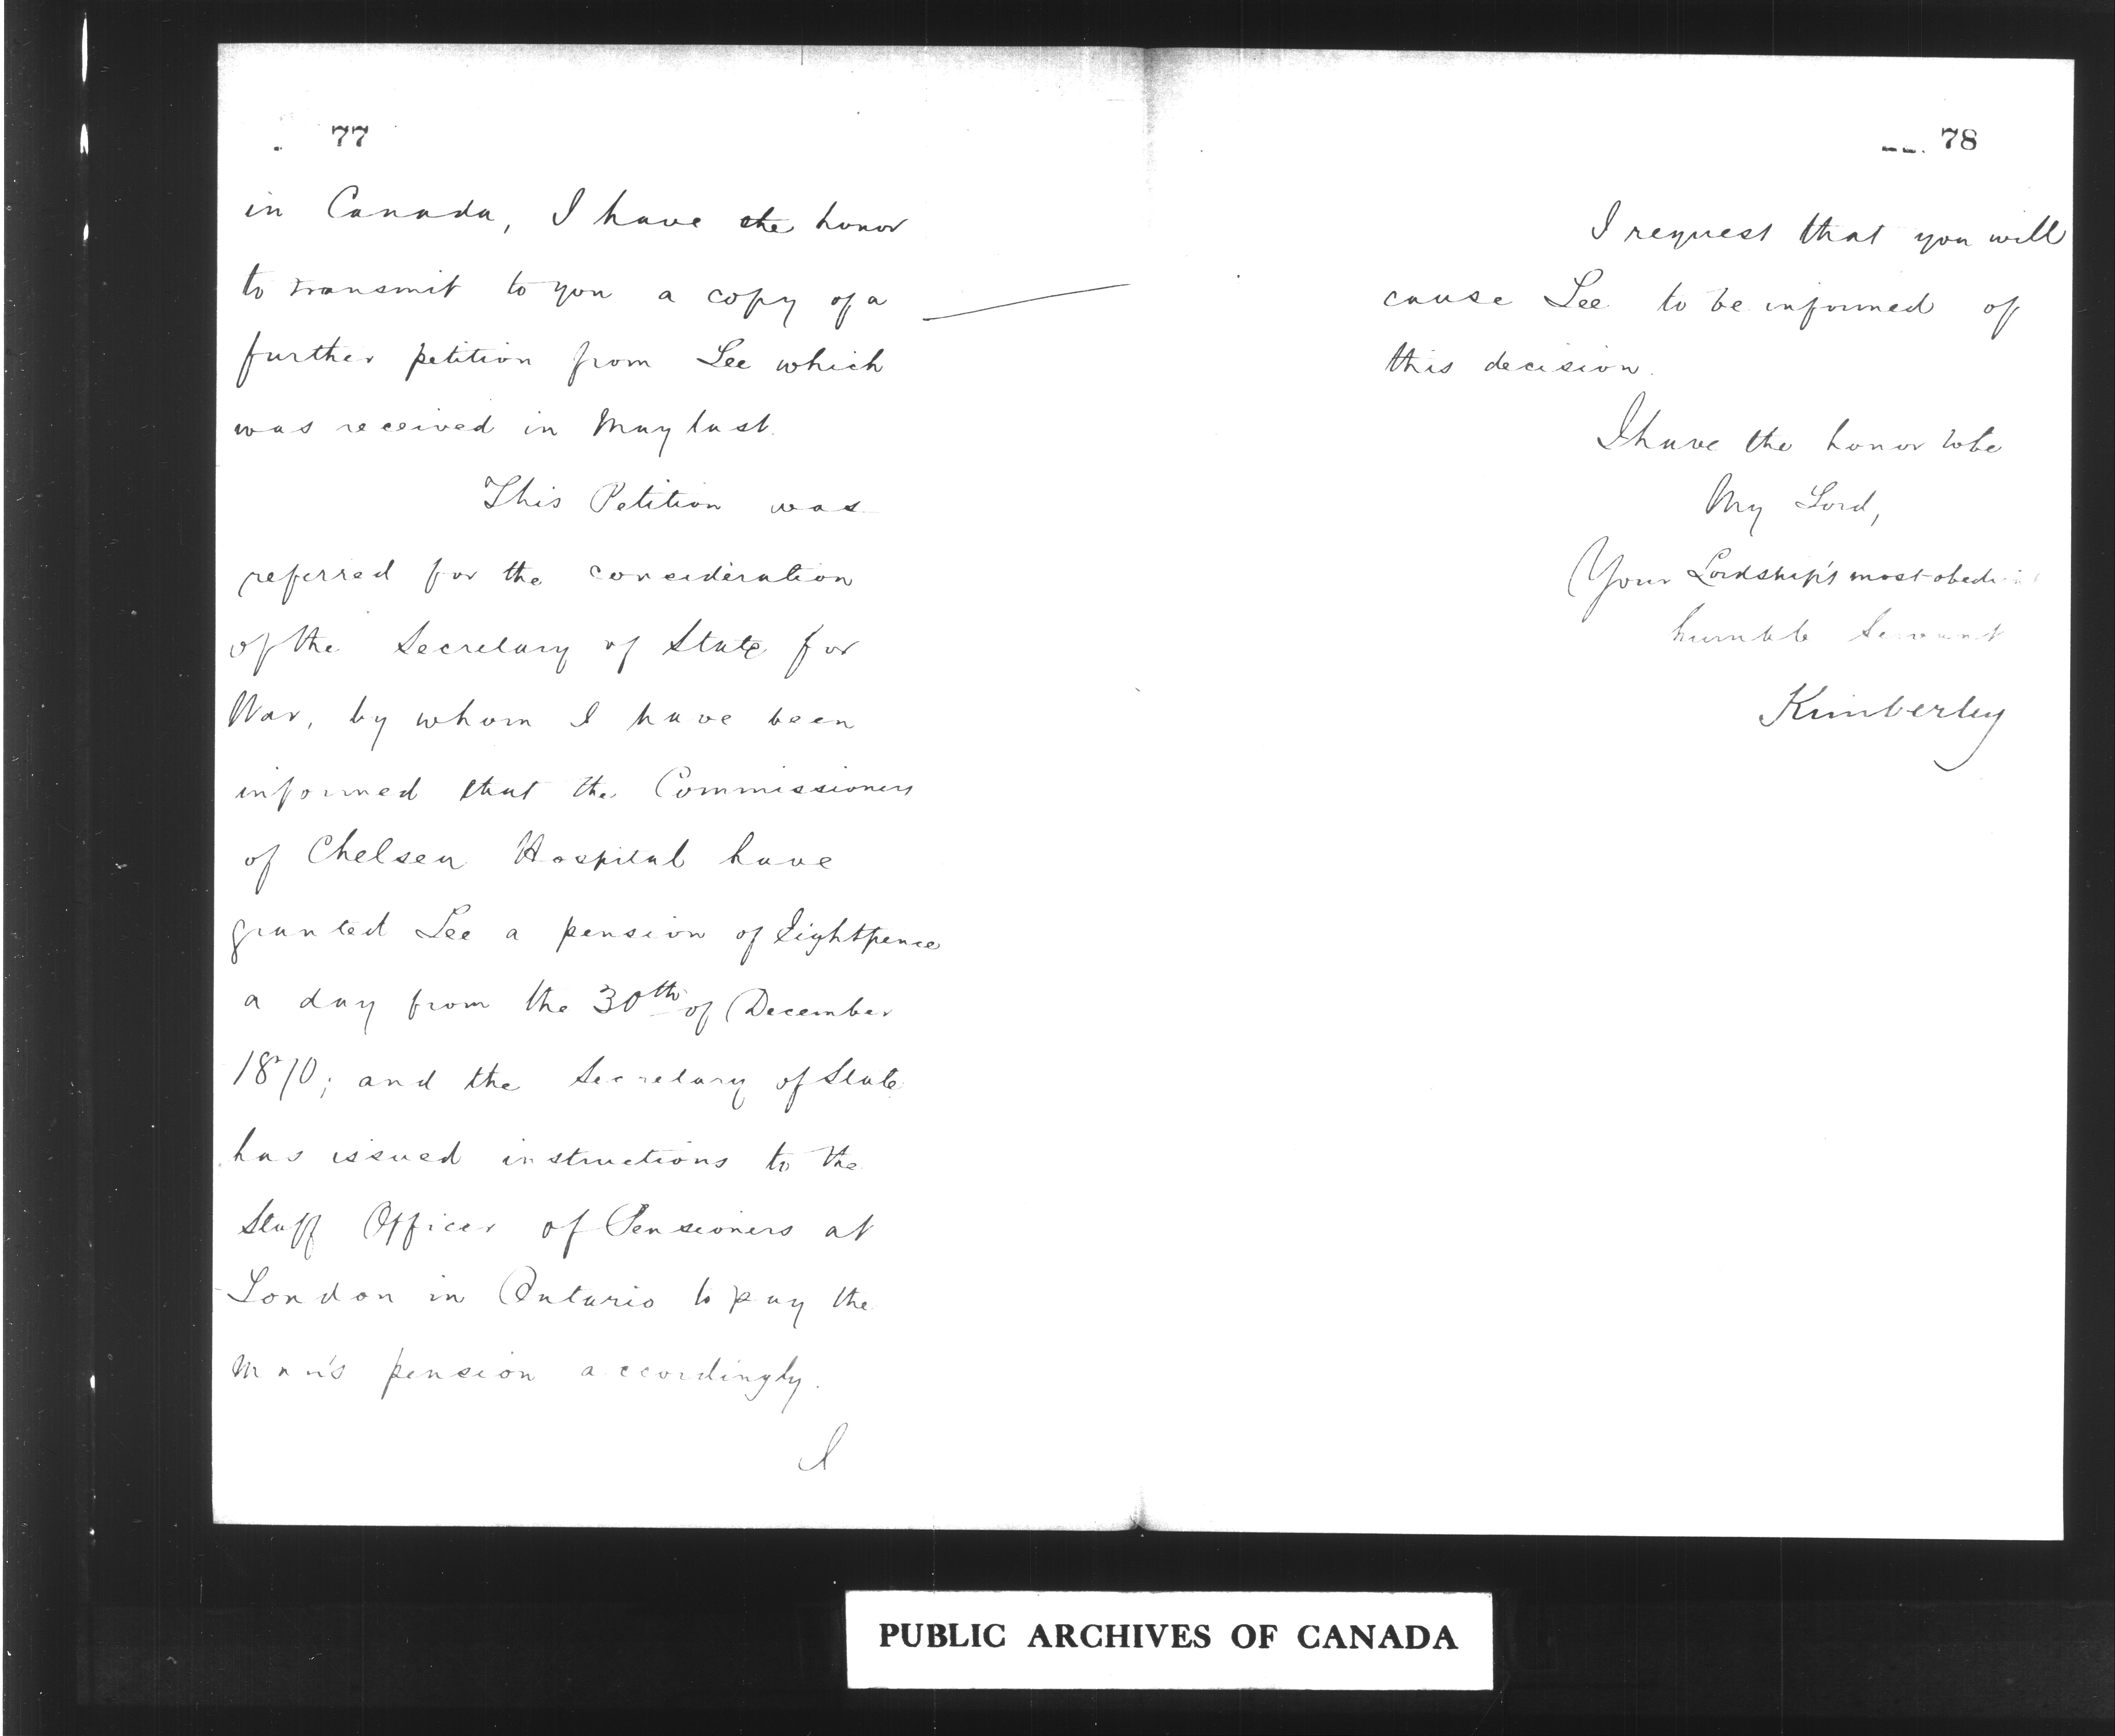 77
in Canada, I have the honor
to transmit to you a copy of a
further petition from Lee which
was received in May last.
This Petition was
referred for the consideration
of the Secretary of State for
War, by whom I have been
informed that the Commissioners
of Chelsea Hospital have
granted Lee a pension of Eightpence
a day from the 30th of December
1870; and the Secretary of State
has issued instructions to the
Staff Officer of Pensioners at
London in Ontario to pay the
man's pension accordingly.
I
78
I request that you will
cause Lee to be informed of
this decision.
I have the honor to be
My Lord,
Your Lordship's most obedient
humble Servant
Kimberley
PUBLIC ARCHIVES OF CANADA